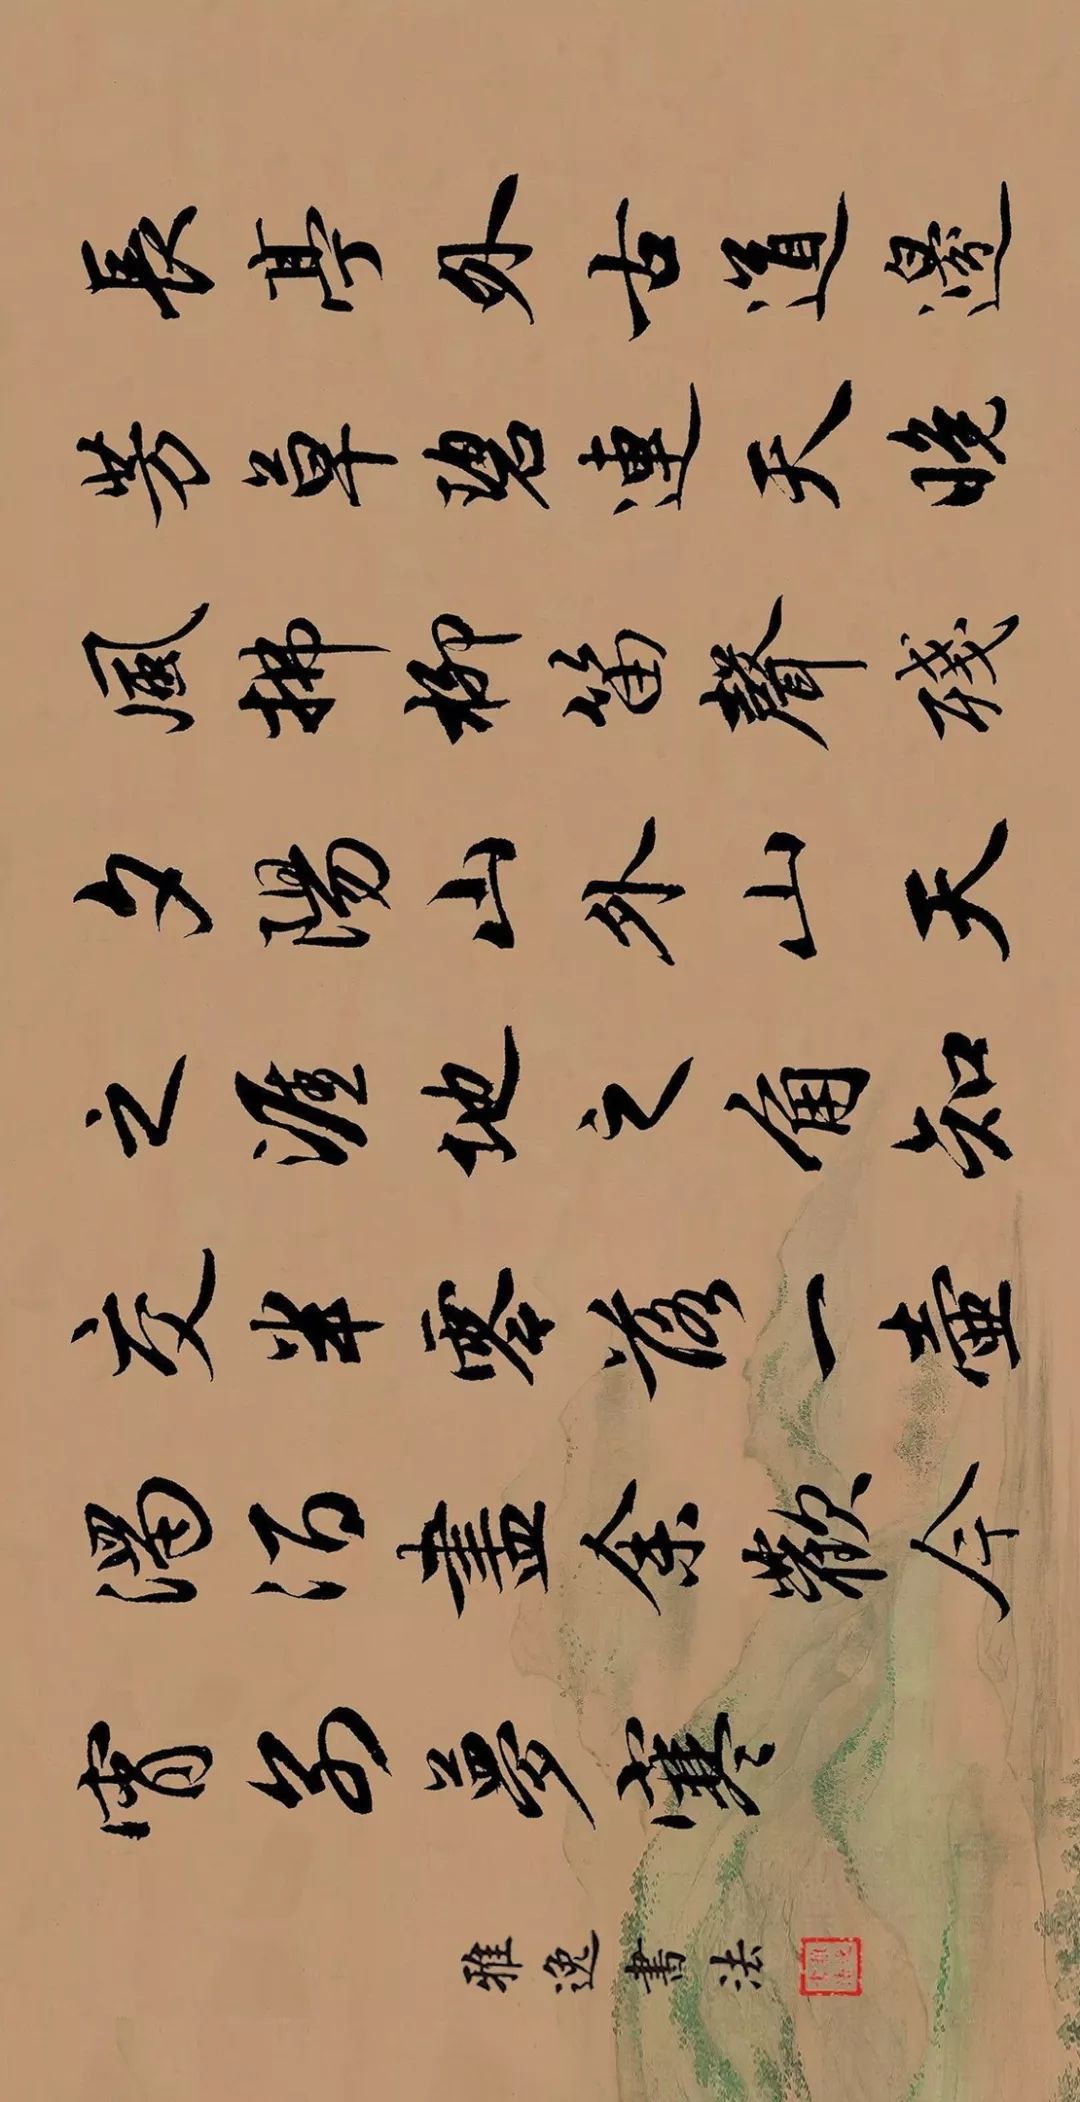 長亭外古道邊
芳草碧連天晚
風拂柳笛聲殘
夕陽山外山天
之涯地之角知
交半零落一壺
濁酒盡余歡今
宵別夢寒
雅逸書法